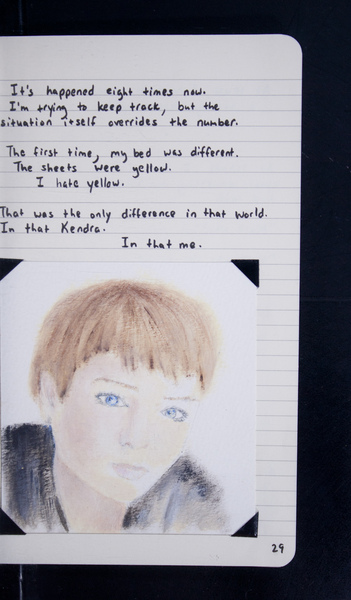 It's happened eight times now.
I'm trying to keep track, but the
situation itself overrides the number.
The first time, my bed was different.
The sheets were yellow.
I hate yellow.
That was the only difference in that world.
In that Kendra.
In that me.
29